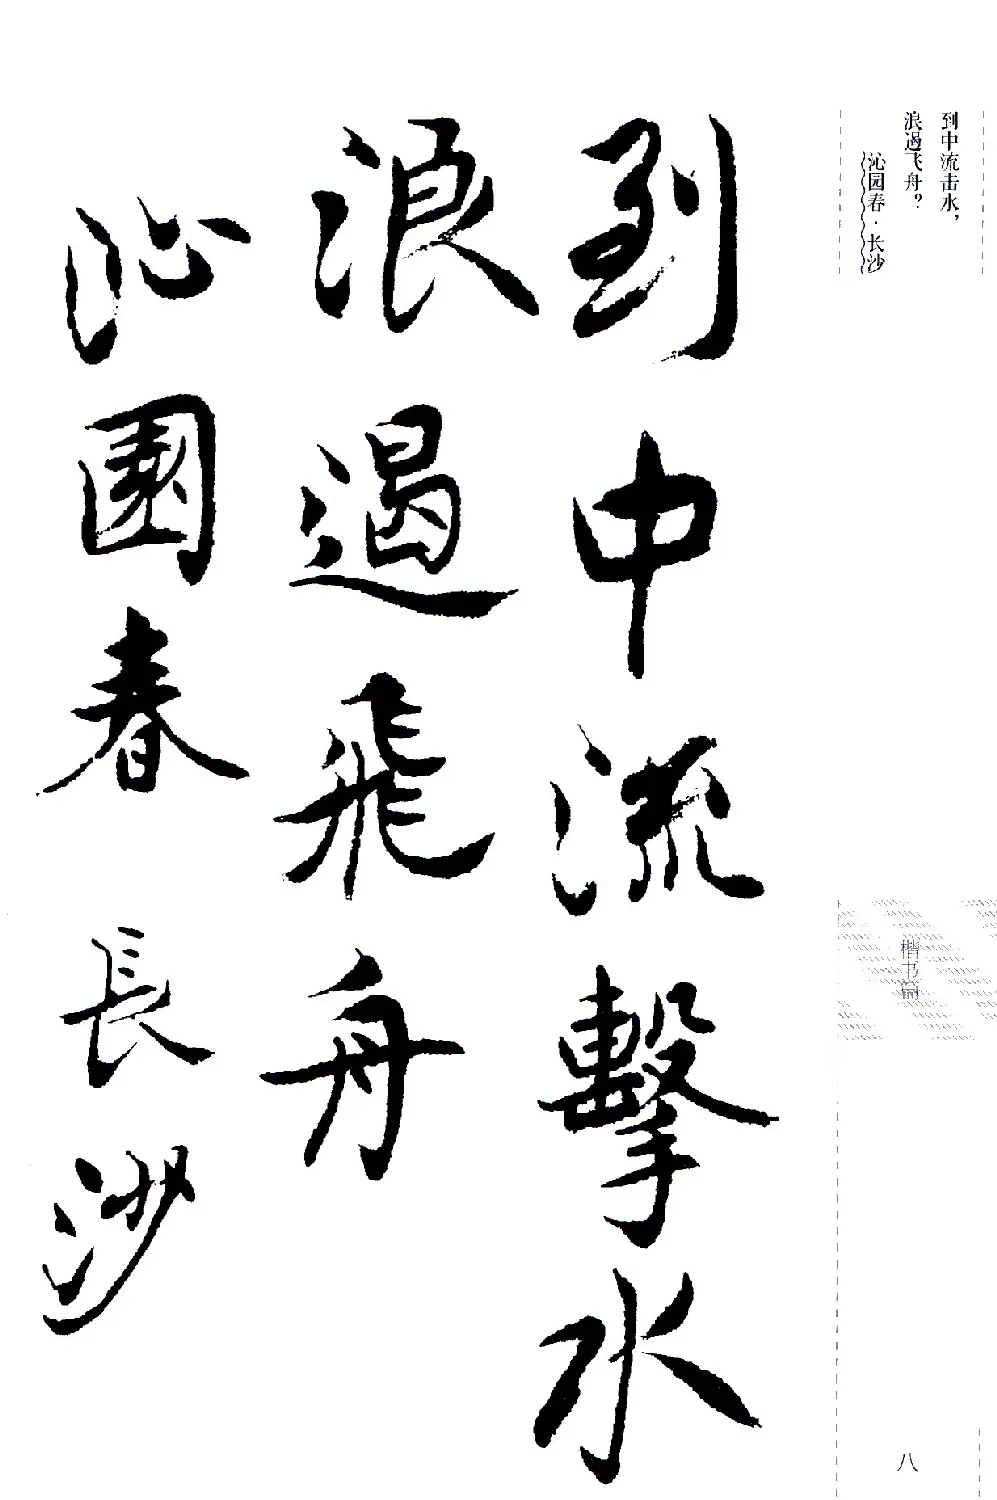 到中流击水，
浪遏飞舟？
沁园春·长沙
到中流擊水
浪遏飛舟
沁園春
長沙
楷书篇
八